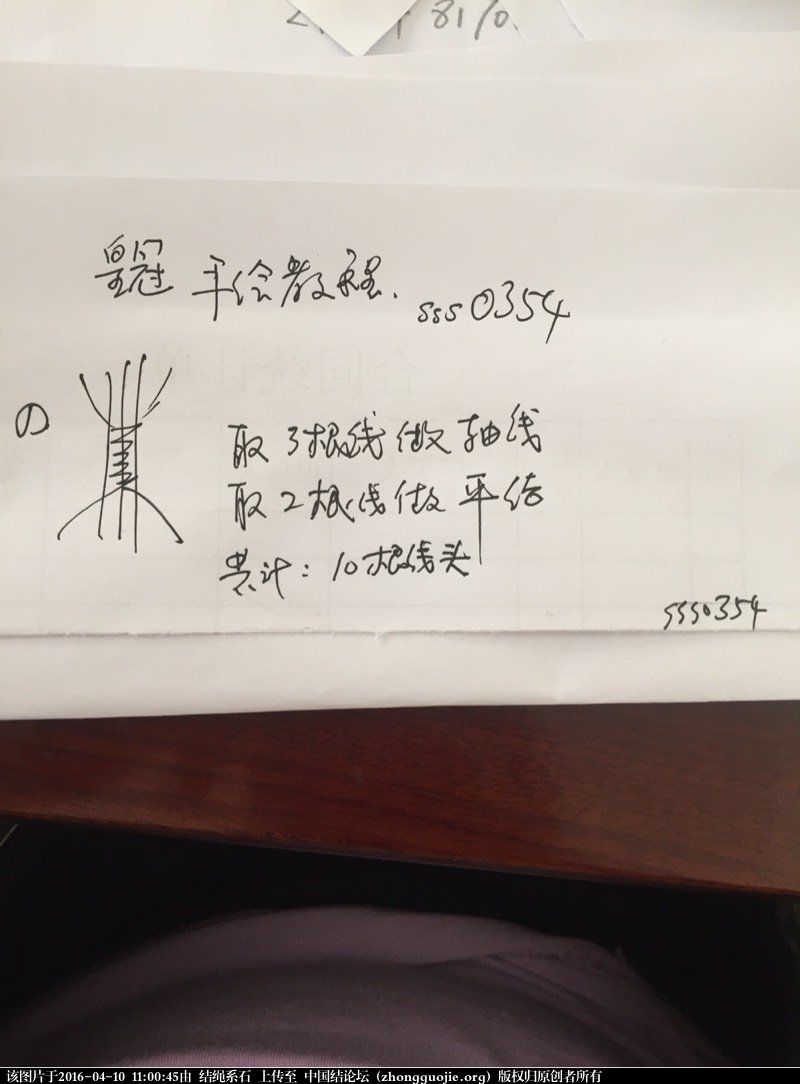 81%
皇冠 手绘教程. sss0354
の
取3根线做轴线
取2根线做平结
共计:10根线头
sss0354
该图片于2016-04-10 11:00:45由 结绳系石 上传至 中国结论坛 (zhongguojie.org) 版权归原创者所有